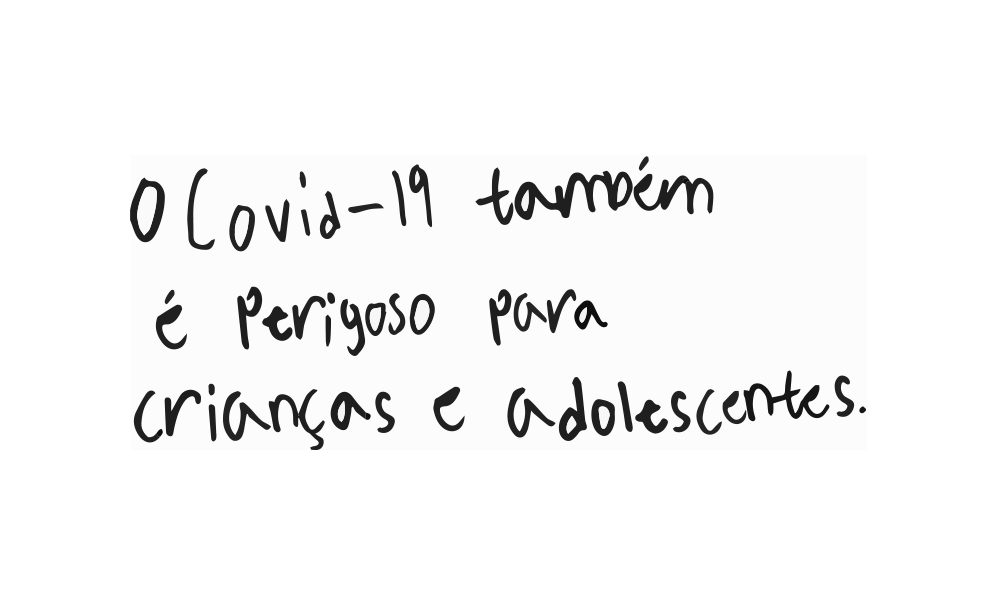 O Covid-19 também
é perigoso para
crianças e adolescentes.